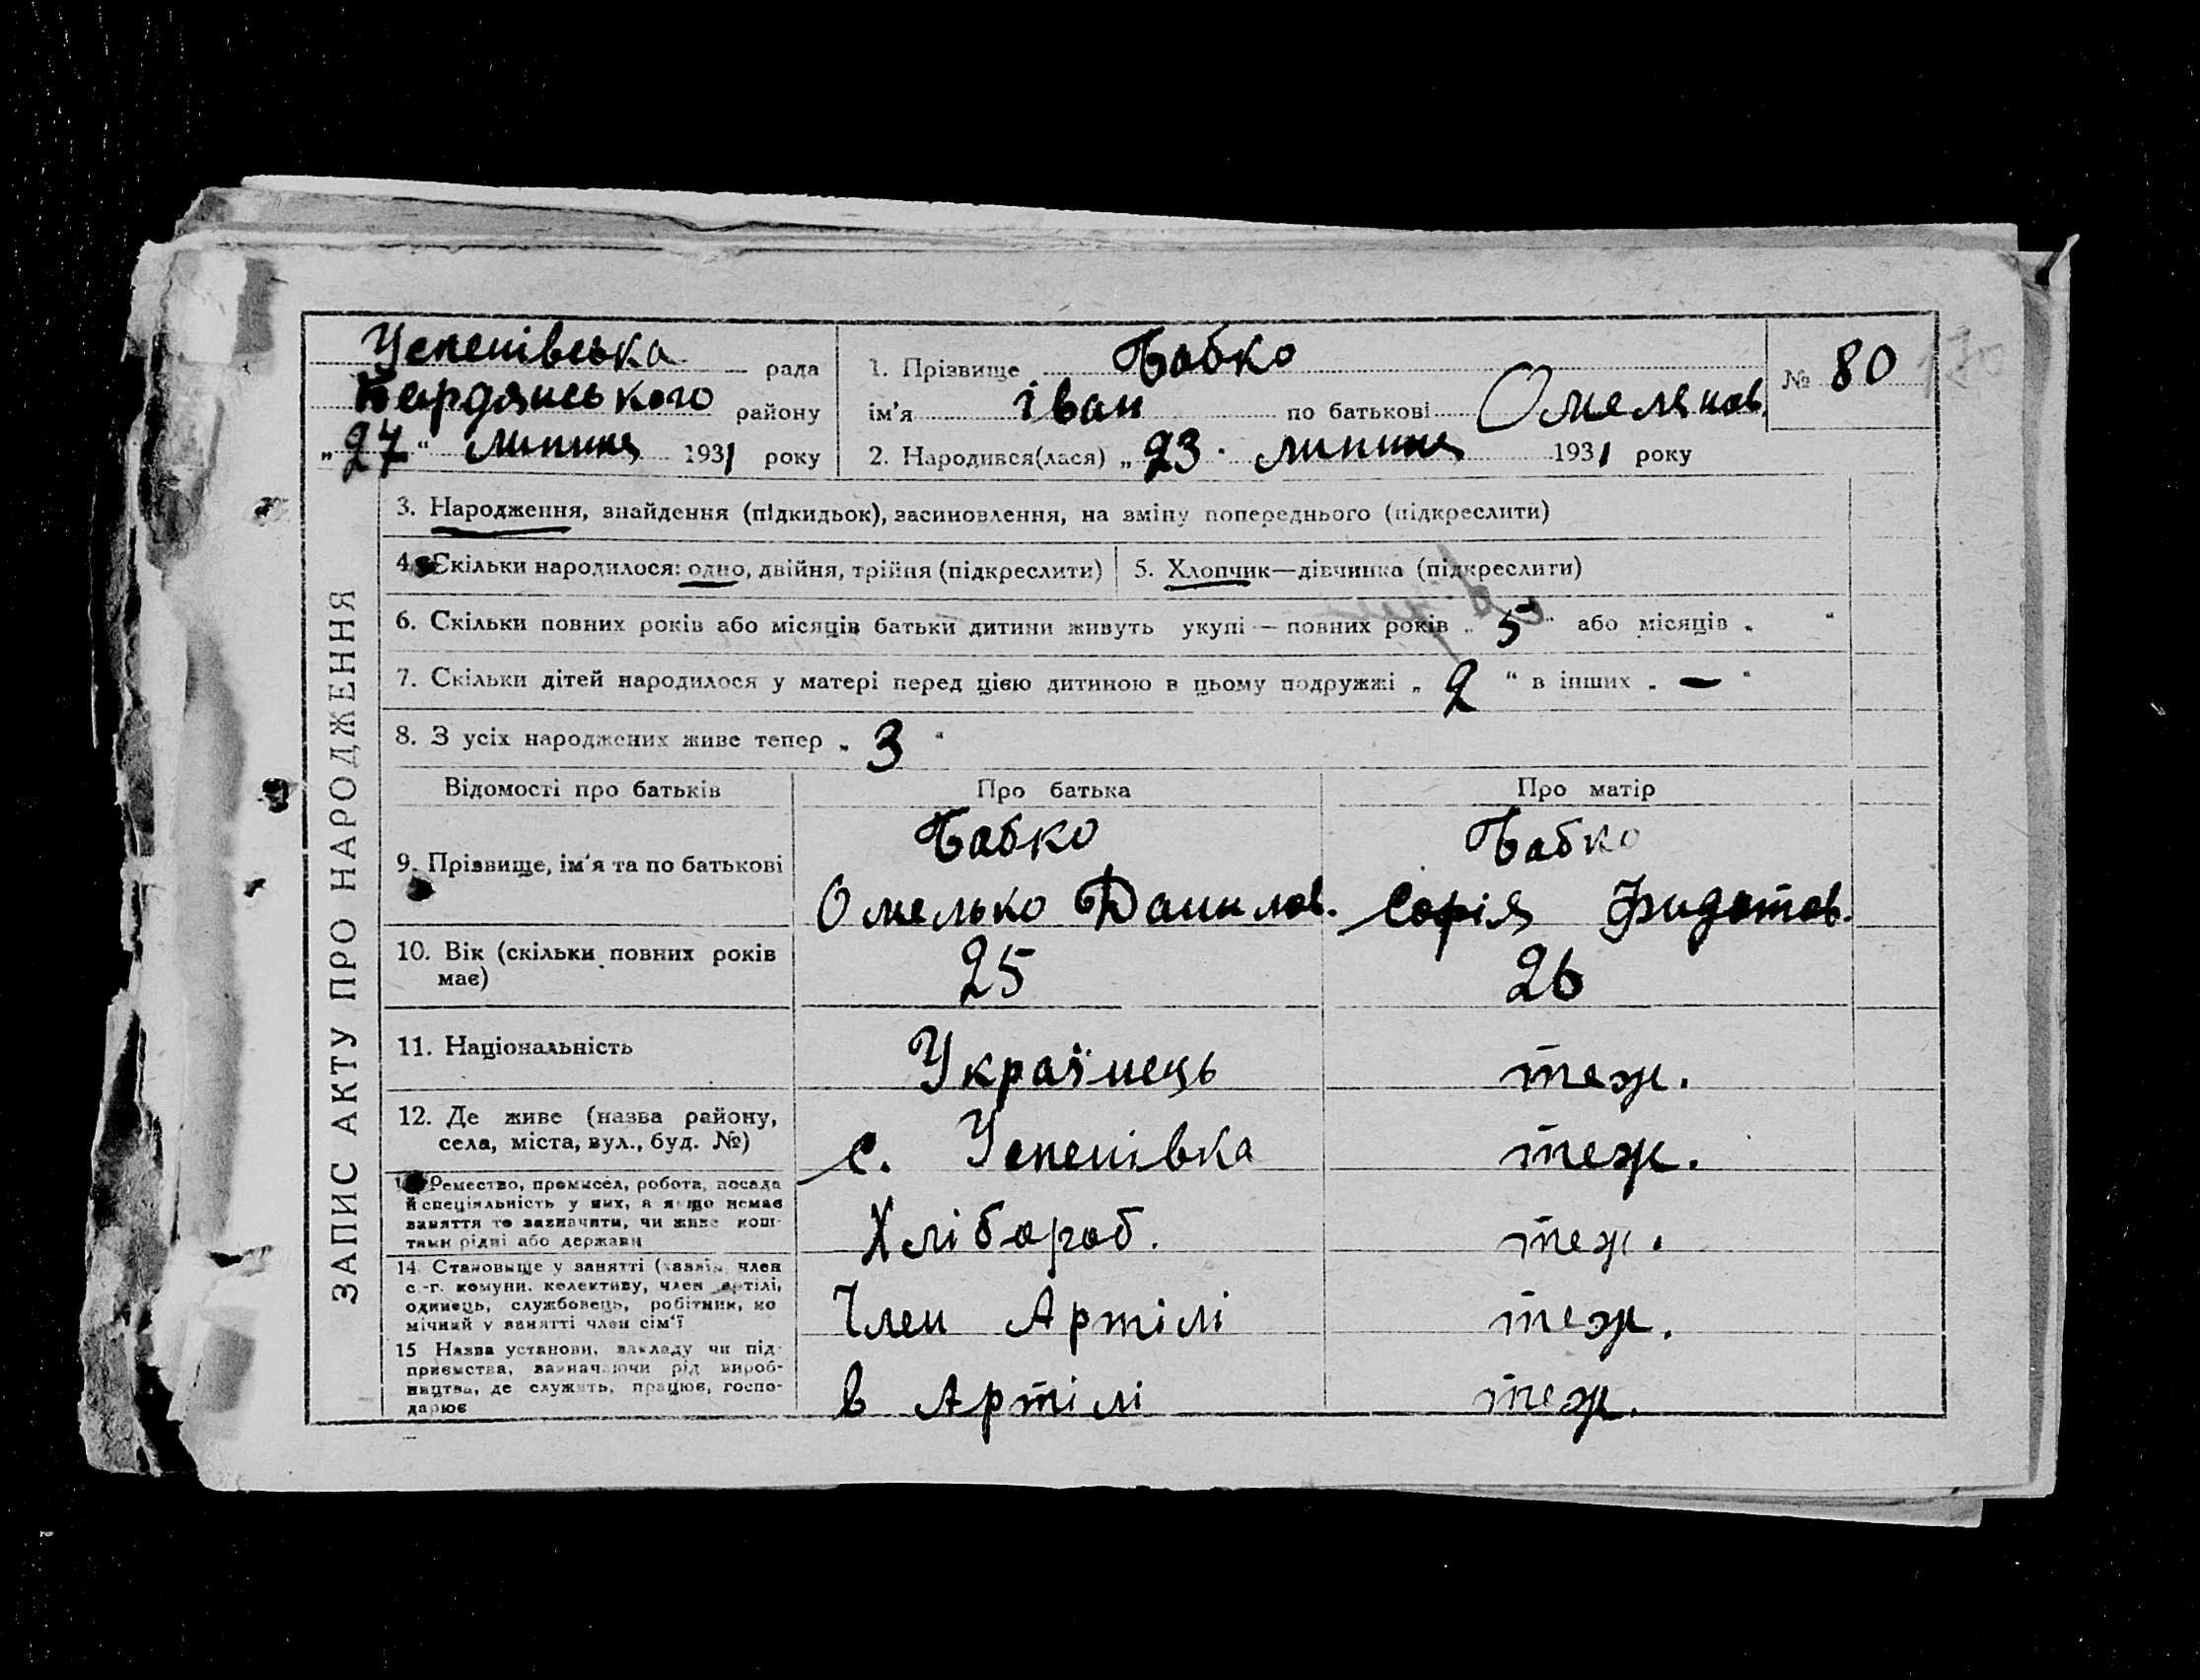 Успенівська рада
Бердянського району
„27“ липня 1931 року
1. Прізвище Бабко
ім'я Іван по батькові Омелянов.
2. Народився(лася) „23. липня 1931 року
№ 80
170
ЗАПИС АКТУ ПРО НАРОДЖЕННЯ
3. Народження, знайдення (підкидьок), засиновлення, на зміну попереднього (підкреслити)
4. Скільки народилося: одно, двійня, трійня (підкреслити)
5. Хлопчик—дівчинка (підкреслити)
6. Скільки повних років або місяців батьки дитини живуть укупі — повних років „5“ або місяців „ “
7. Скільки дітей народилося у матері перед цією дитиною в цьому подружжі „2“ в інших „—“
8. З усіх народжених живе тепер „3“
Відомості про батьків Про батька Про матір
9. Прізвище, ім'я та по батькові
Бабко
Омелько Данилов.
Бабко
Софія Фидотов.
10. Вік (скільки повних років
має)
25 26
11. Національність Українець теж.
12. Де живе (назва району,
села, міста, вул., буд. №)
с. Успенівка теж.
Ремество, промисел, робота, посада
й спеціяльність у них, а якщо немає
заняття то зазначити, чи живе кош-
тами рідні або держави
Хлібороб. теж.
14. Становище у занятті (хазяїн, член
с.-г. комуни, колективу, член артілі,
одинець, службовець, робітник, по
мічний у занятті член сім'ї
Член Артілі теж.
15 Назва установи, закладу чи під-
приємства, зазначаючи рід вироб-
ництва, де служить, працює, госпо-
дарює
в Артілі теж.